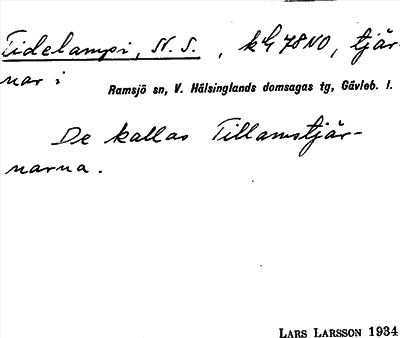 Tidelampi, N. S. , k 4 78 NO, tjär-
nar i
Ramsjö sn, V. Hälsinglands domsagas tg, Gävleb. l.
De kallas Tillamstjär-
narna.
LARS LARSSON 1934